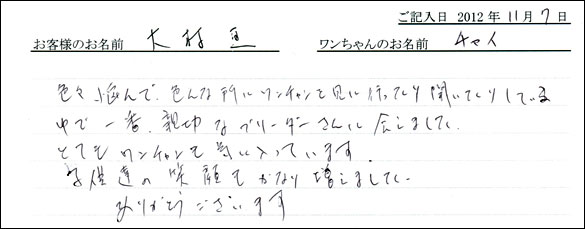 ご記入日 2012年11月7日
お客様のお名前 大村 亘 ワンちゃんのお名前 チャイ
色々悩んで、色んな所にワンチャンを見に行ったり聞いてたりしている
中で一番、親切なブリーダーさんに会えました。
とてもワンチャンも気に入っています。
子供達の笑顔もかなり増えました。
ありがとうございます